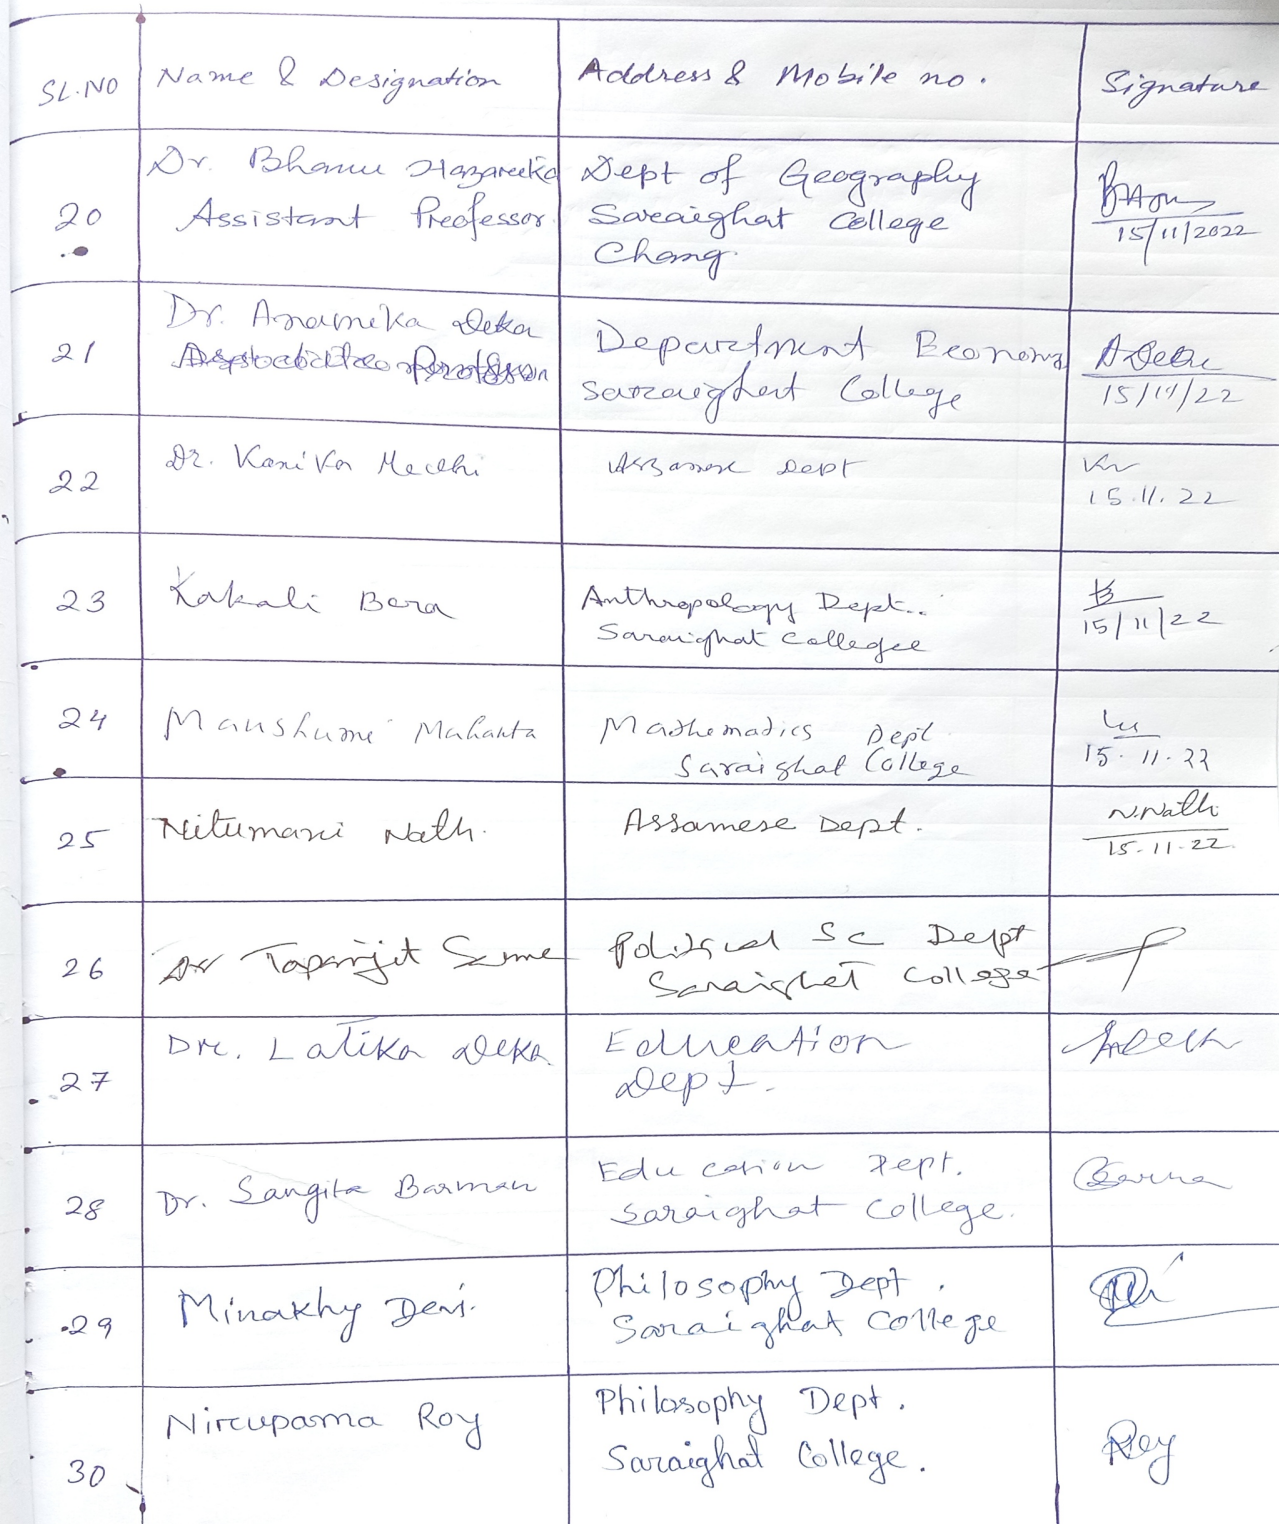 SL.NO Name & Designation Address & Mobile no. Signature
Dr. Bhanu Hazareeka Dept of Geography
20 Assistant Preofessor. Sareaighat College
Chang. 15/11/2022
Dr. Anamika Deka
21 Department Economi A Deka
Saraighat College 15/11/22
22 Dr. Kanika Medhi Assamese Dept
15.11.22
23 Kakali Bora Anthropology Dept..
Saraighat Collegee 15/11/22
24 Manshumi Mahanta Mathematics Dept
Saraighat College 15.11.22
25 Nitumani Nath. Assamese Dept. N.Nath
15.11.22.
26 Dr Tapanjit Political Sc Dept
Saraighat College
27 Dre. Latika Deka Education
Dept.
28 Dr. Sangita Barman Education Dept.
Saraighat College.
29 Minakhy Devi. Philosophy Dept.
Saraighat College
30 Nircupama Roy Philosophy Dept.
Saraighat College. Roy